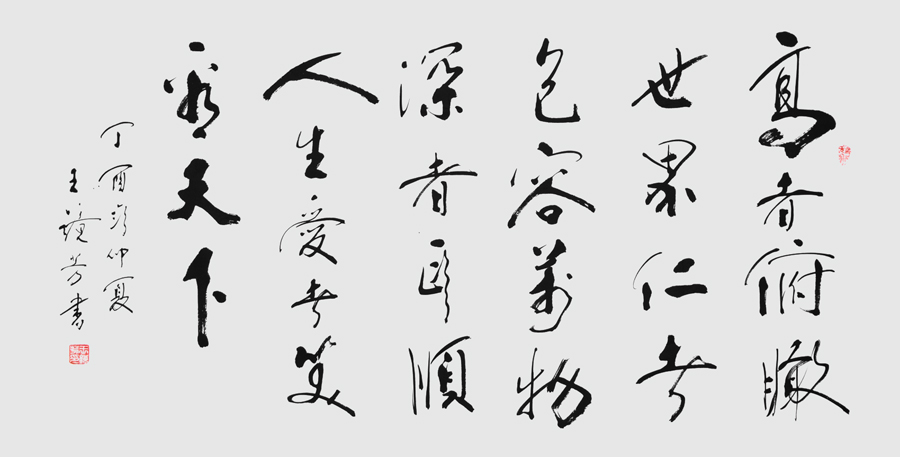 高者俯瞰
世界仁者
包容萬物
深者順
人生愛者笑
看天下
丁酉歲仲夏
王芳書